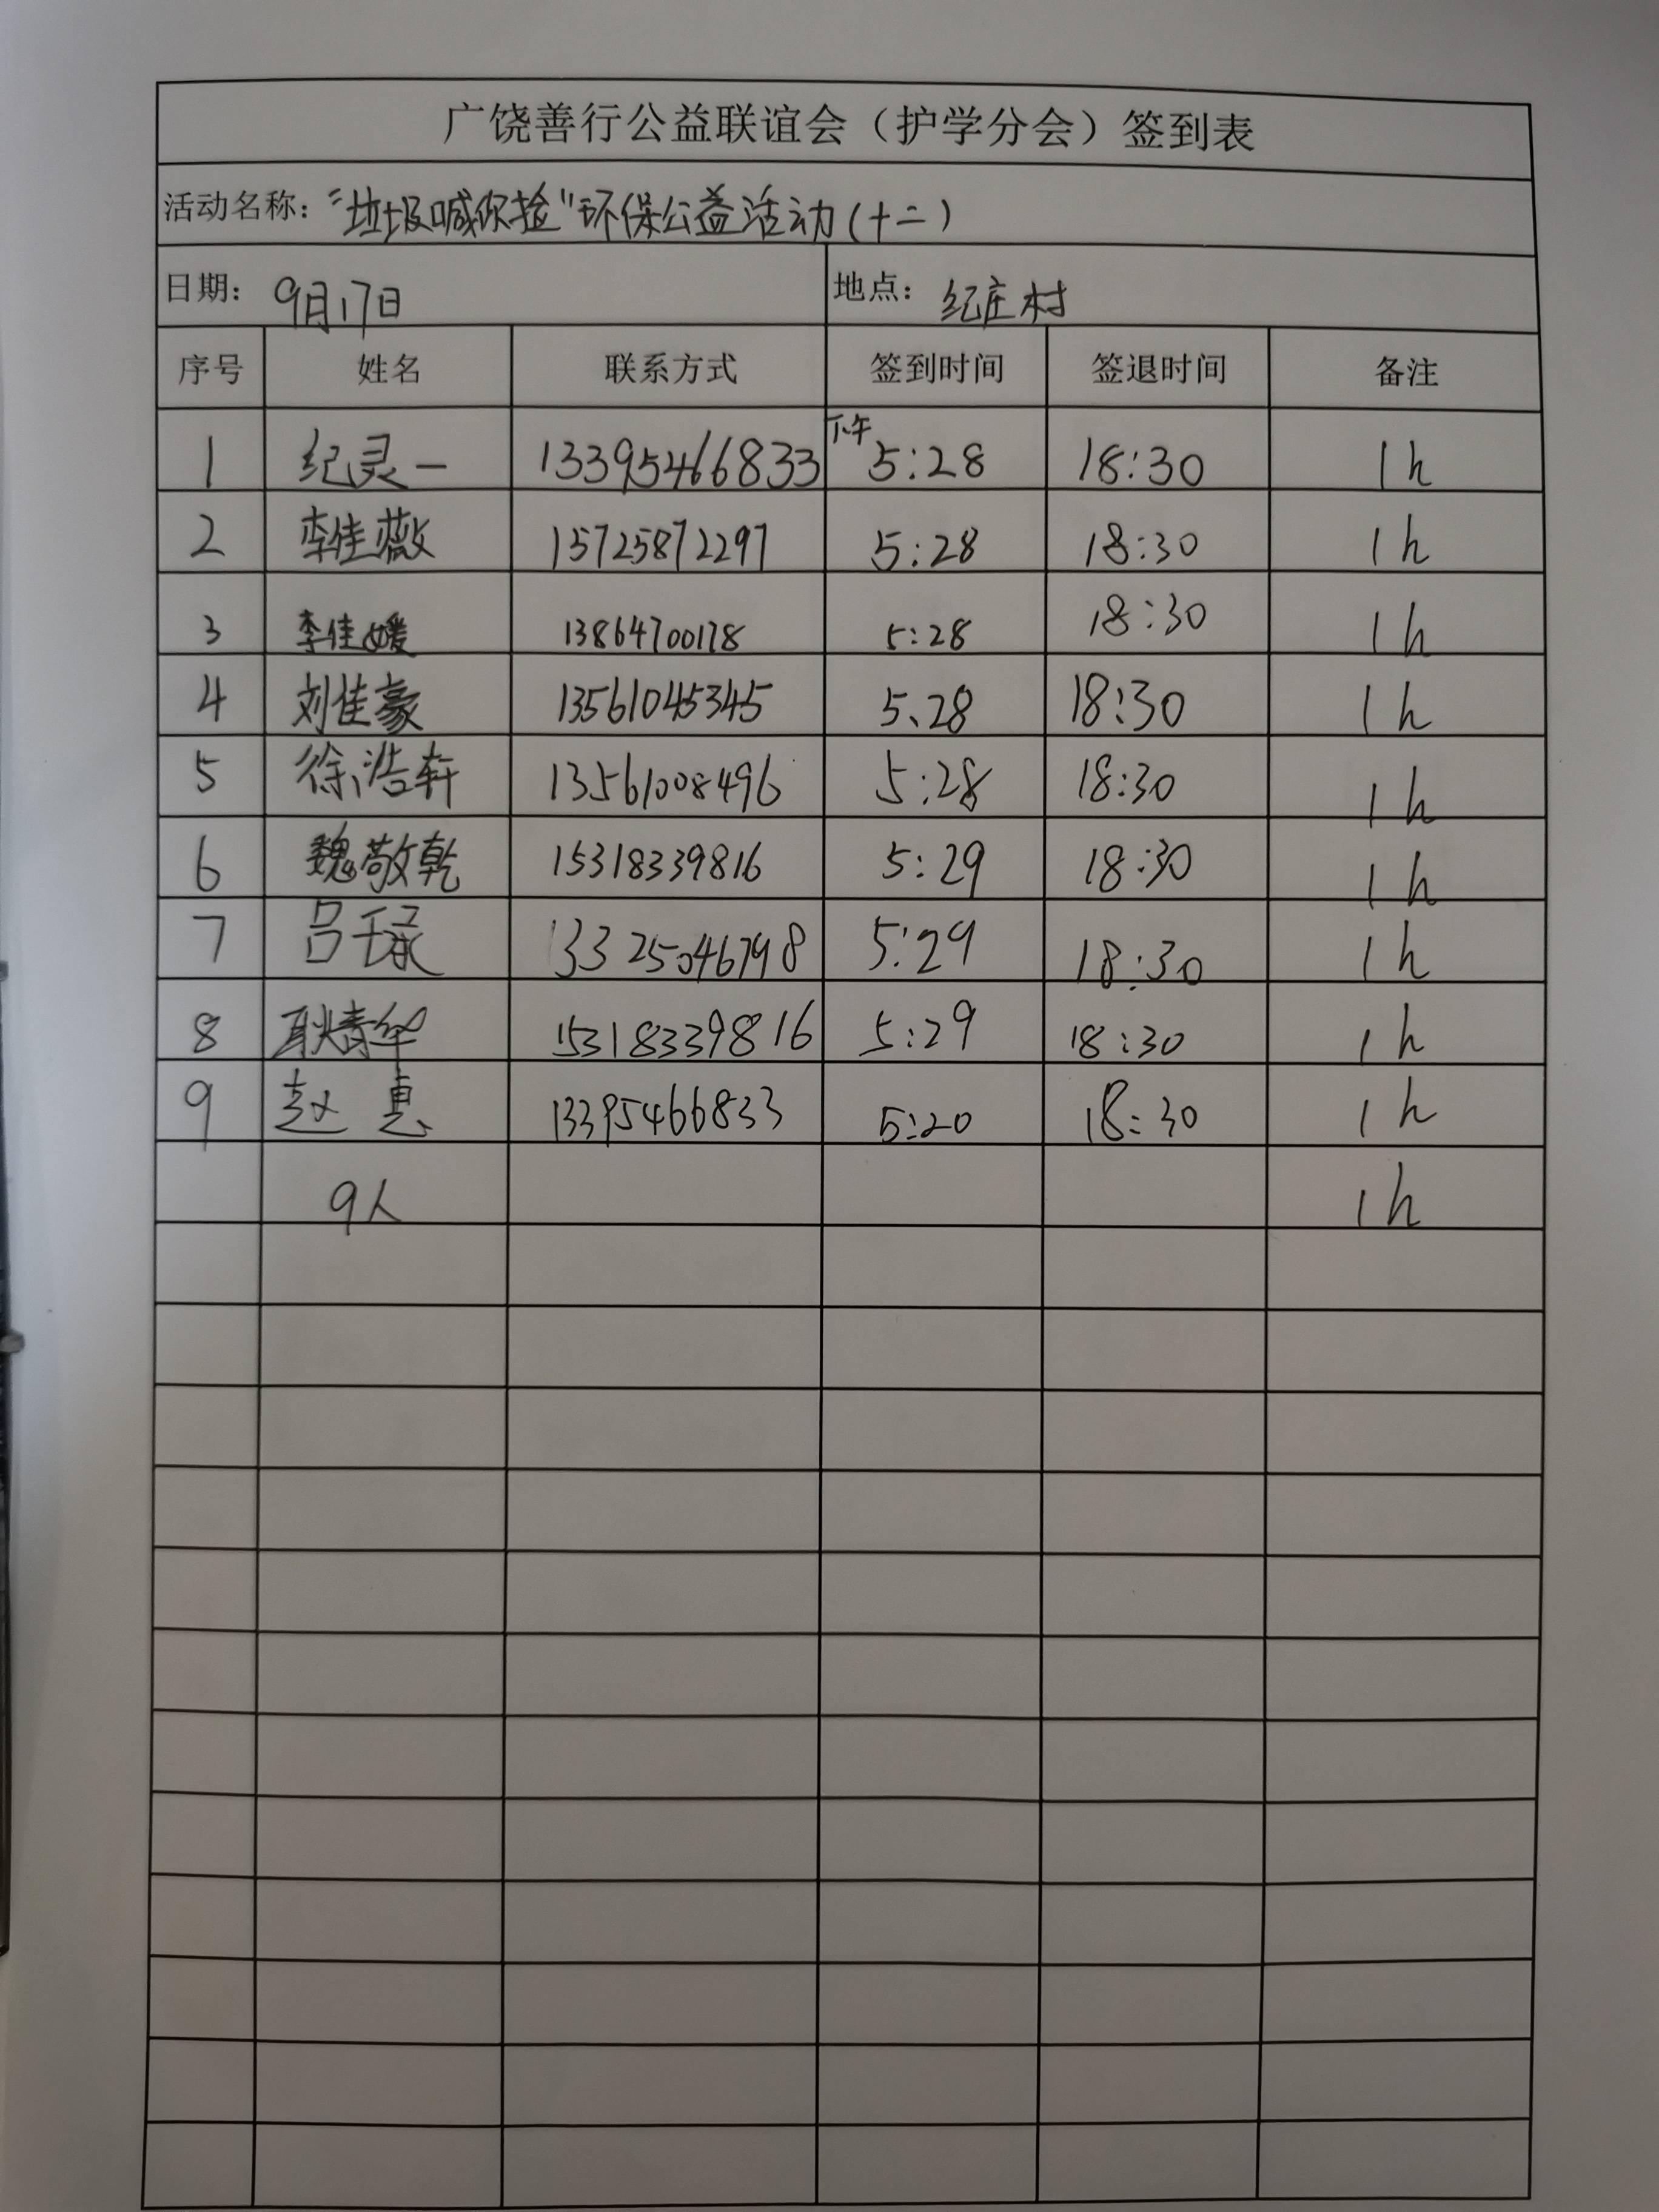 广饶善行公益联谊会（护学分会）签到表
活动名称：“垃圾喊你捡”环保公益活动（十二）
日期：9月17日 地点：纪庄村
序号 姓名 联系方式 签到时间 签退时间 备注
1 纪灵一 13395466833 下午5:28 18:30 1h
2 李佳薇 15725872297 5:28 18:30 1h
3 李佳媛 13864700178 5:28 18:30 1h
4 刘佳豪 13561045345 5、28 18:30 1h
5 徐浩轩 13561008496 5:28 18:30 1h
6 魏敬乾 15318339816 5:29 18:30 1h
7 吕 13325046798 5:29 18:30 1h
8 耿青华 15318339816 5:29 18:30 1h
9 赵惠 13395466833 5:20 18:30 1h
9人 1h